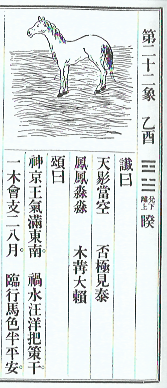 第二十二象 乙酉 ䷥ 兌下離上 睽
讖曰
天影當空 否極見泰
鳳鳳淼淼 木冓大賴
頌曰
神京王氣滿東南。 禍水汪洋把策干
一木會支二八月。 臨行馬色半平安。